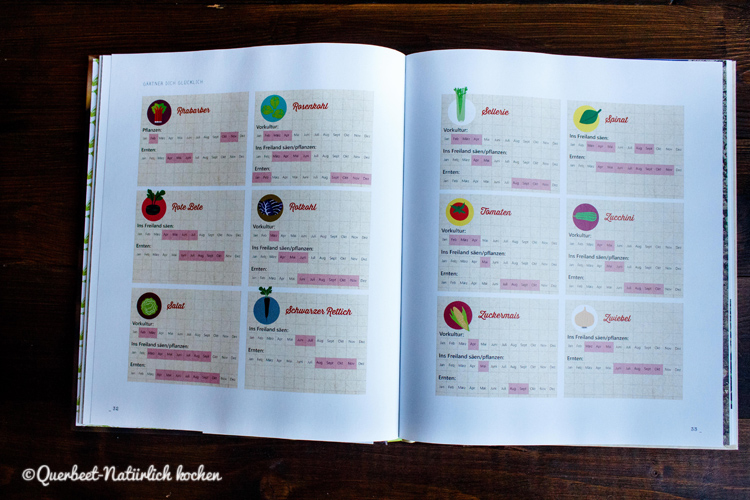 GÄRTNER DICH GLÜCKLICH
Rhabarber
Pflanzen:
Jan Feb März Apr Mai Jun Juli Aug Sept Okt Nov Dez
Ernten:
Jan Feb März Apr Mai Jun Juli Aug Sept Okt Nov Dez
Rosenkohl
Vorkultur:
Jan Feb März Apr Mai Jun Juli Aug Sept Okt Nov Dez
Ins Freiland säen/pflanzen:
Jan Feb März Apr Mai Jun Juli Aug Sept Okt Nov Dez
Ernten:
Jan Feb März Apr Mai Jun Juli Aug Sept Okt Nov Dez
Rote Bete
Ins Freiland säen:
Jan Feb März Apr Mai Jun Juli Aug Sept Okt Nov Dez
Ernten:
Jan Feb März Apr Mai Jun Juli Aug Sept Okt Nov Dez
Rotkohl
Vorkultur:
Jan Feb März Apr Mai Jun Juli Aug Sept Okt Nov Dez
Ins Freiland säen/pflanzen:
Jan Feb März Apr Mai Jun Juli Aug Sept Okt Nov Dez
Ernten:
Jan Feb März Apr Mai Jun Juli Aug Sept Okt Nov Dez
Salat
Vorkultur:
Jan Feb März Apr Mai Jun Juli Aug Sept Okt Nov Dez
Ins Freiland säen/pflanzen:
Jan Feb März Apr Mai Jun Juli Aug Sept Okt Nov Dez
Ernten:
Jan Feb März Apr Mai Jun Juli Aug Sept Okt Nov Dez
Schwarzer Rettich
Ins Freiland säen:
Jan Feb März Apr Mai Jun Juli Aug Sept Okt Nov Dez
Ernten:
Jan Feb März Apr Mai Jun Juli Aug Sept Okt Nov Dez
32
Sellerie
Vorkultur:
Jan Feb März Apr Mai Jun Juli Aug Sept Okt Nov Dez
Ins Freiland säen/pflanzen:
Jan Feb März Apr Mai Jun Juli Aug Sept Okt Nov Dez
Ernten:
Jan Feb März Apr Mai Jun Juli Aug Sept Okt Nov Dez
Spinat
Ins Freiland säen:
Jan Feb März Apr Mai Jun Juli Aug Sept Okt Nov Dez
Ernten:
Jan Feb März Apr Mai Jun Juli Aug Sept Okt Nov Dez
Tomaten
Vorkultur:
Jan Feb März Apr Mai Jun Juli Aug Sept Okt Nov Dez
Ins Freiland pflanzen:
Jan Feb März Apr Mai Jun Juli Aug Sept Okt Nov Dez
Ernten:
Jan Feb März Apr Mai Jun Juli Aug Sept Okt Nov Dez
Zucchini
Vorkultur:
Jan Feb März Apr Mai Jun Juli Aug Sept Okt Nov Dez
Ins Freiland säen/pflanzen:
Jan Feb März Apr Mai Jun Juli Aug Sept Okt Nov Dez
Ernten:
Jan Feb März Apr Mai Jun Juli Aug Sept Okt Nov Dez
Zuckermais
Vorkultur:
Jan Feb März Apr Mai Jun Juli Aug Sept Okt Nov Dez
Ins Freiland säen/pflanzen:
Jan Feb März Apr Mai Jun Juli Aug Sept Okt Nov Dez
Ernten:
Jan Feb März Apr Mai Jun Juli Aug Sept Okt Nov Dez
Zwiebel
Ins Freiland säen/pflanzen:
Jan Feb März Apr Mai Jun Juli Aug Sept Okt Nov Dez
Ernten:
Jan Feb März Apr Mai Jun Juli Aug Sept Okt Nov Dez
33
©Querbeet-Natürlich kochen